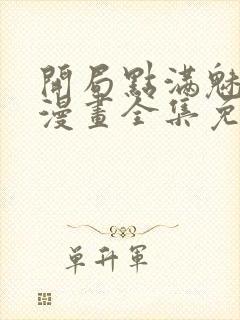 開局點滿魅
漫畫全集免
单升軍